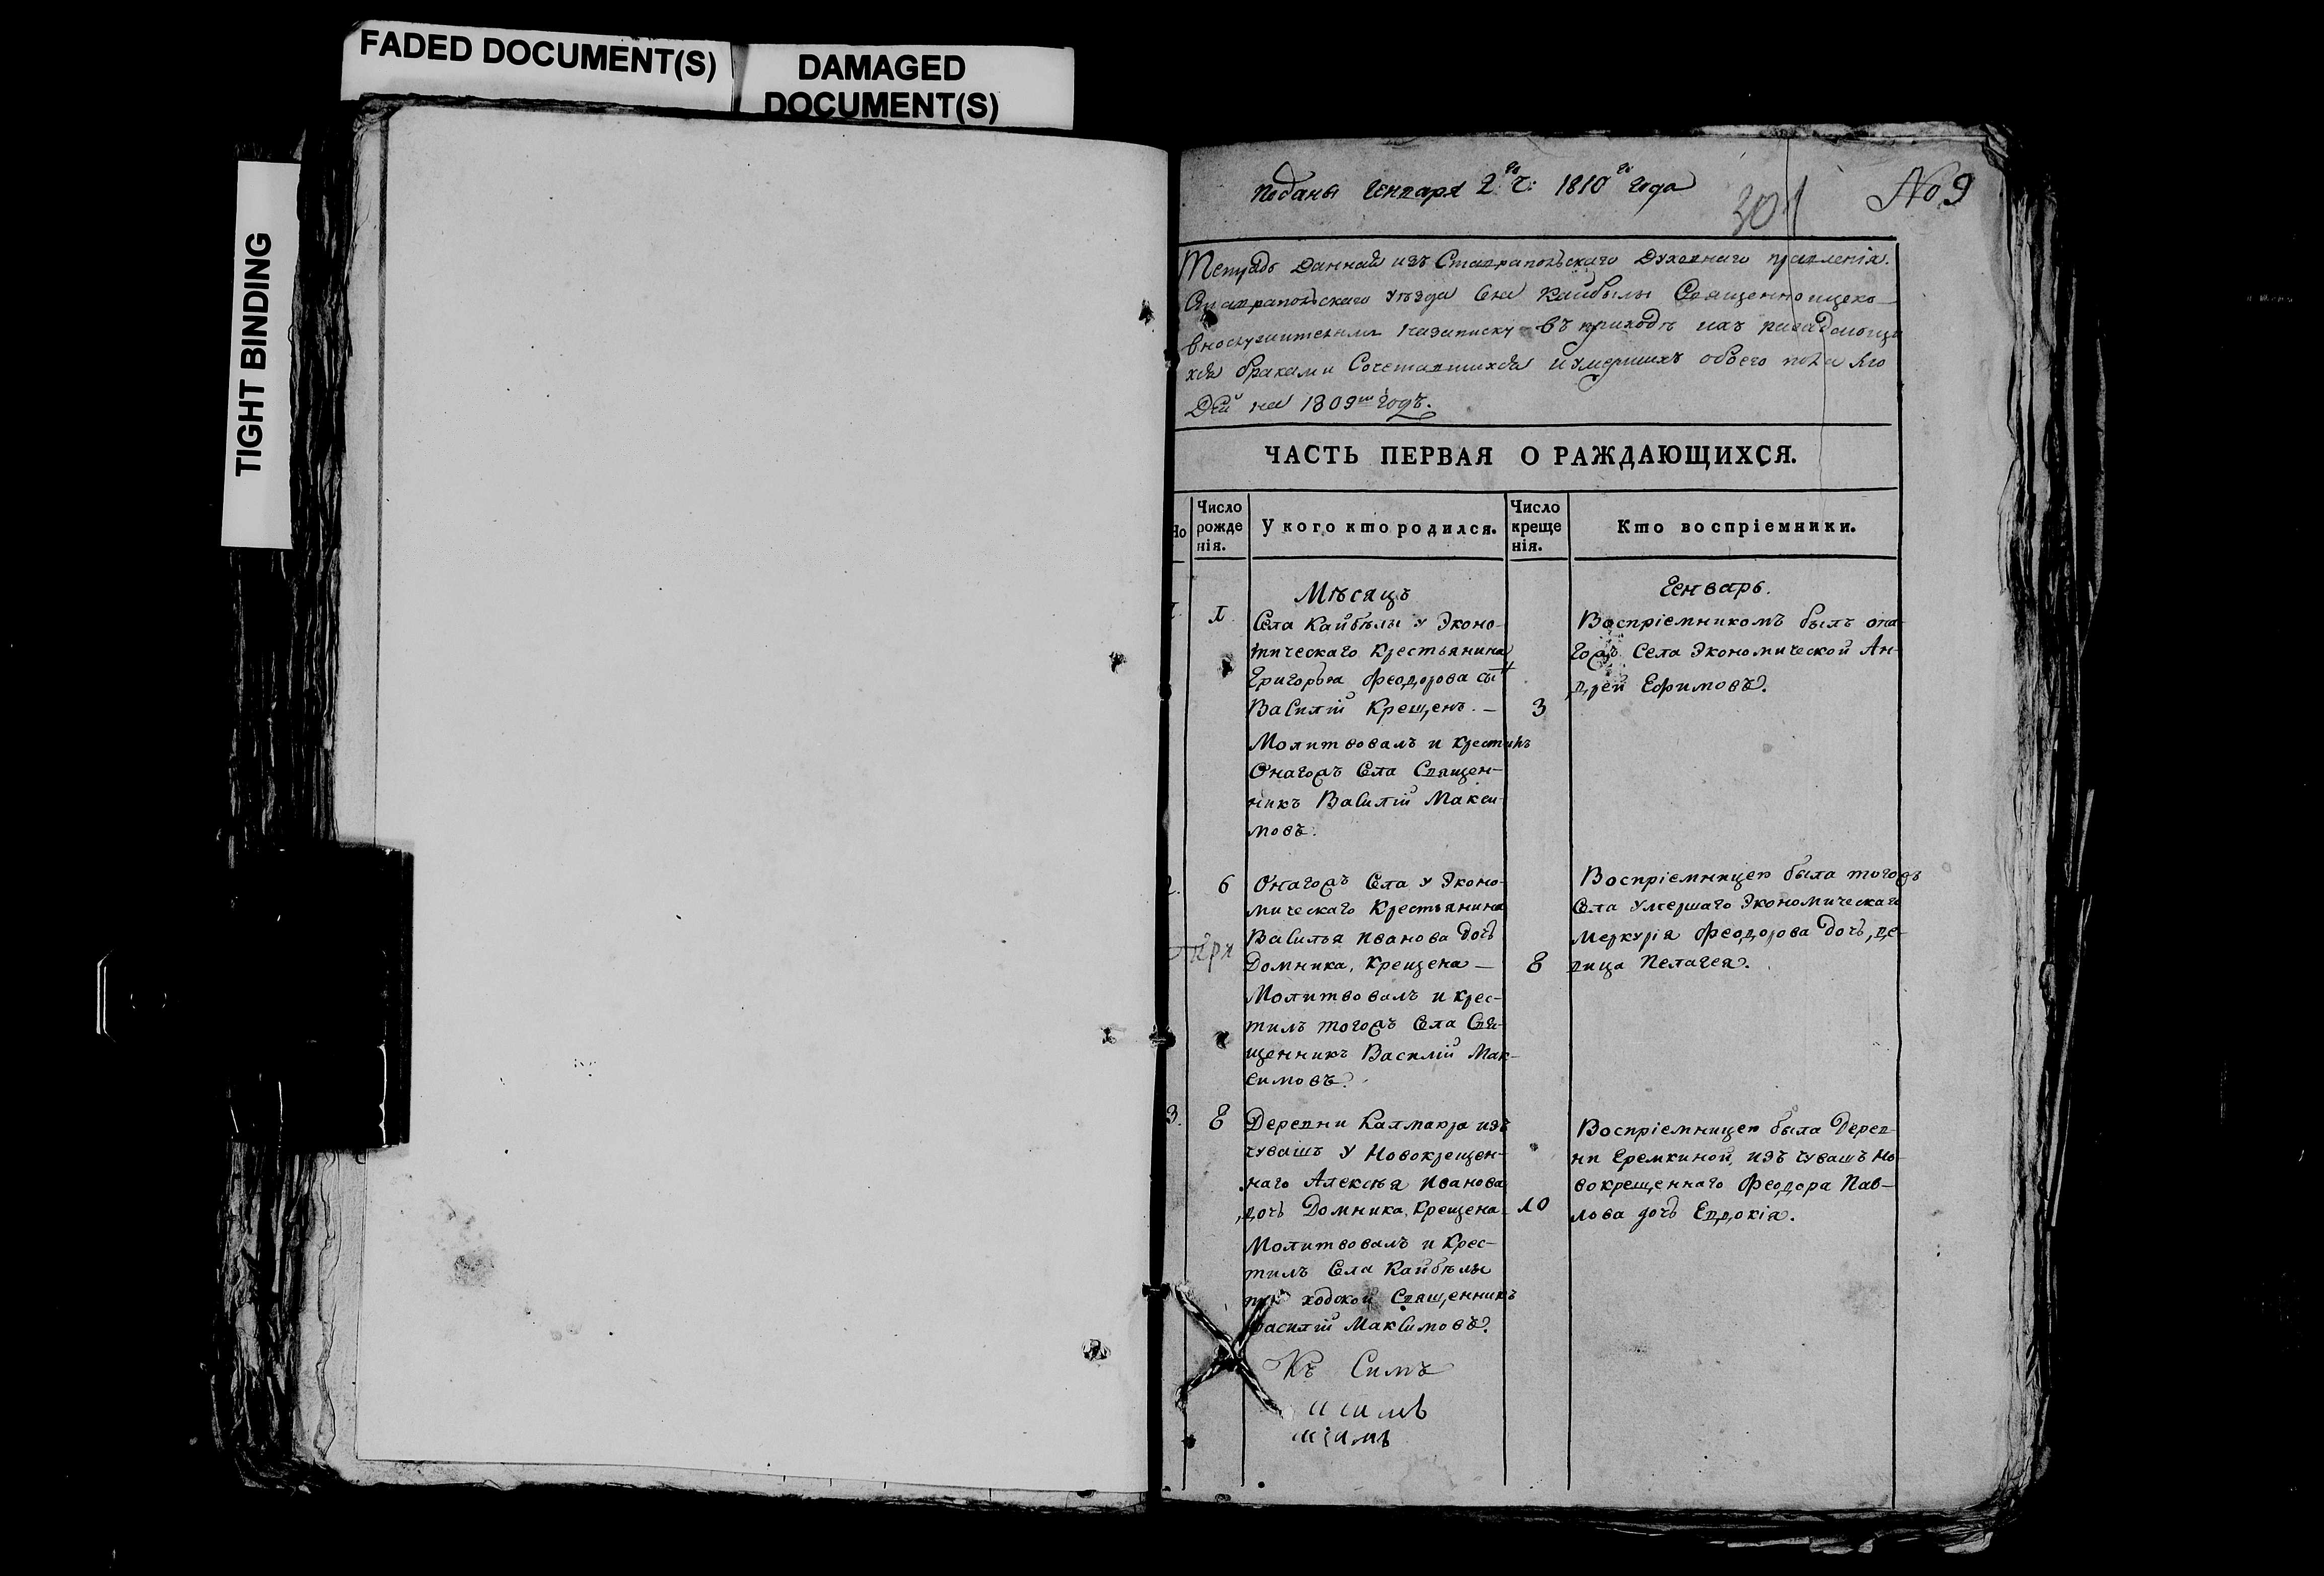 FADED DOCUMENT(S)
DAMAGED
DOCUMENT(S)
TIGHT BINDING
Поданы Генваря 2го ч: 1810го года
301
No 9
Тетрадь данная изъ Ставрапольскаго Духовнаго правленія.
Ставрапольскаго уѣзда Села Кайбылы Священноцерко
вах обоего пола люо
дей на 1809ый годъ.
ЧАСТЬ ПЕРВАЯ О РАЖДАЮЩИХСЯ.
No
Число
рожде
нія.
У кого кто родился.
Число
креще
нія.
Кто воспріемники.
Мѣсяцъ
Генварь.
1 1
Села Кайбѣлы у Эконо-
мическаго Крестьянина
Григорья Феодорова сынъ
Василій Крещенъ. — 3
Молитвовалъ и крестилъ
Онагожъ Села Священ-
никъ Василій Макси-
мовъ.
Воспріемникомъ былъ она-
гожъ Села Экономической Ан-
дрей Ефимовъ.
2. 6
Онагожъ Села у Эконо-
мическаго Крестьянина
Василья Иванова дочь
Домника, Крещена — 8
Молитвовалъ и крес-
тилъ тогожъ Села Свя-
щенникъ Василій Мак-
симовъ.
Воспріемницею была тогожъ
Села умершаго Экономическаго
Меркурія Феодорова дочь, де-
вица Пелагея.
3. 8
Деревни Калмаюра изъ
чувашъ у Новокрещен-
наго Алексѣя Иванова
дочь Домника, Крещена 10
Молитвовалъ и Крес-
тилъ Села Кайбѣлы
приходской Священникъ
Василій Максимовъ.
Воспріемницею была Дерев-
ни Еремкиной, изъ чувашъ Но-
вокрещеннаго Феодора Пав-
лова дочь Евдокія.
Къ Симъ